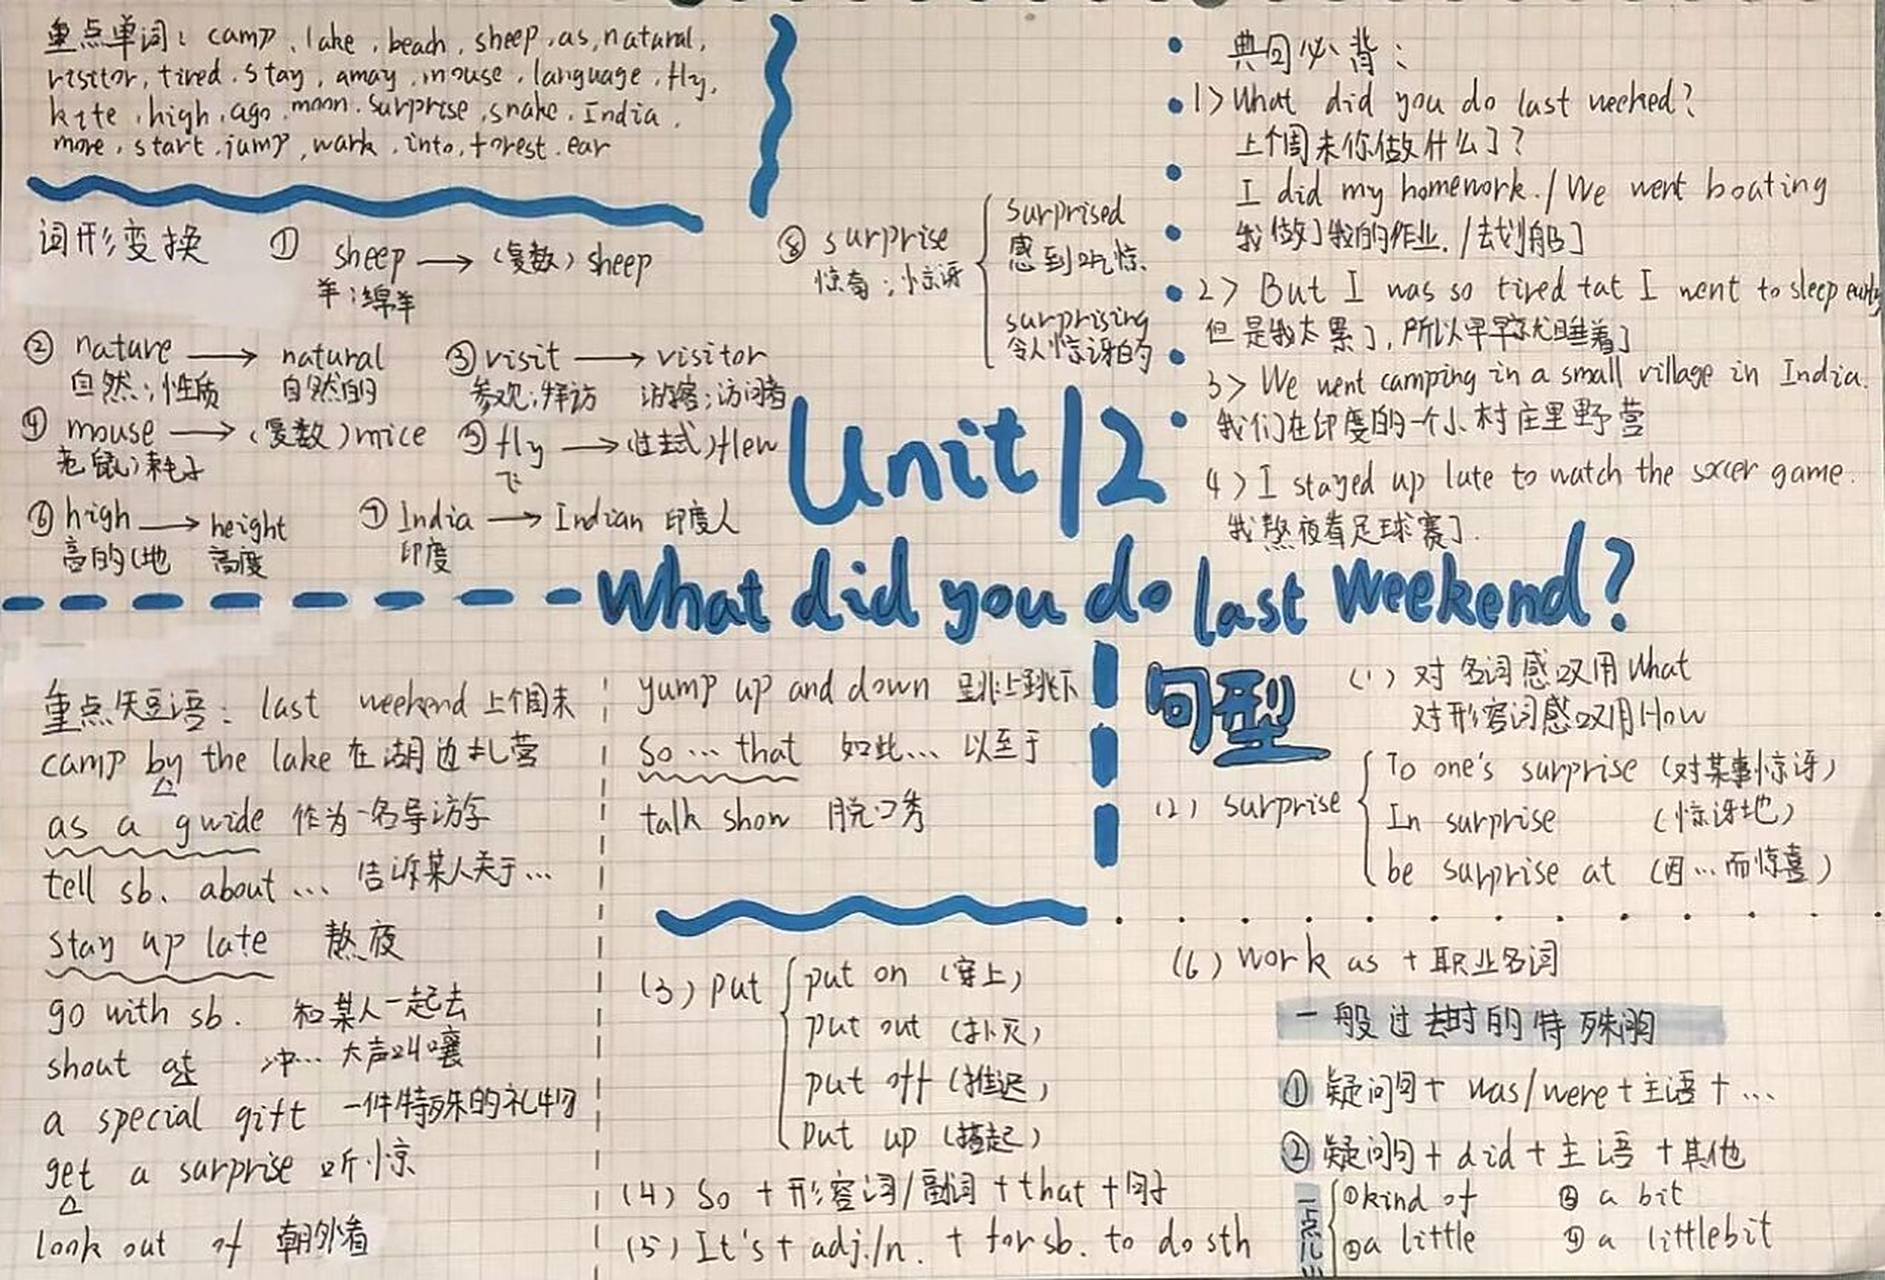 重点单词: camp, lake, beach, sheep, as, natural,
visitor, tired, stay, away, mouse, language, fly,
kite, high, ago, moon, surprise, snake, India,
more, start, jump, wark, into, forest, ear
词形变换 ① sheep → (复数) sheep
羊;绵羊
② nature → natural ③ visit → visitor
自然;性质 自然的 参观;拜访 游客;访问者
④ mouse → (复数) mice ⑤ fly → (过去式) flew
老鼠;耗子 飞
⑥ high → height ⑦ India → Indian 印度人
高的(地 高度 印度
⑧ surprise
惊奇;惊讶
surprised
感到吃惊.
surprising
令人惊讶的
典句必背:
1> What did you do last weeked?
上个周末你做什么了?
I did my homework. / We went boating
我做了我的作业. /去划船了
2> But I was so tired tat I went to sleep early
但是我太累了,所以早早就睡着了
3> We went camping in a small village in India.
我们在印度的一个小村庄里野营
4> I stayed up late to watch the soccer game.
我熬夜看足球赛了.
Unit 12
What did you do last weekend?
重点短语: last weekend 上个周末
camp by the lake 在湖边扎营
as a guide 作为一名导游
tell sb. about ... 告诉某人关于...
stay up late 熬夜
go with sb. 和某人一起去
shout at 冲... 大声叫嚷
a special gift 一件特殊的礼物
get a surprise 吃惊
look out of 朝外看
yump up and down 跳上跳下
so ... that 如此... 以至于
talk show 脱口秀
句型
(1) 对名词感叹用 What
对形容词感叹用 How
(2) surprise
To one's surprise (对某事惊讶)
In surprise (惊讶地)
be surprise at (因...而惊喜)
(3) put
put on (穿上)
put out (扑灭)
put off (推迟)
put up (搭起)
(4) So + 形容词/副词 + that + 句子
(5) It's + adj./n. + for sb. to do sth
(6) work as + 职业名词
一般过去时的特殊
① 疑问句 + was/were + 主语 + ...
② 疑问句 + did + 主语 + 其他
一点儿
① kind of ③ a bit
② a little ④ a littlebit